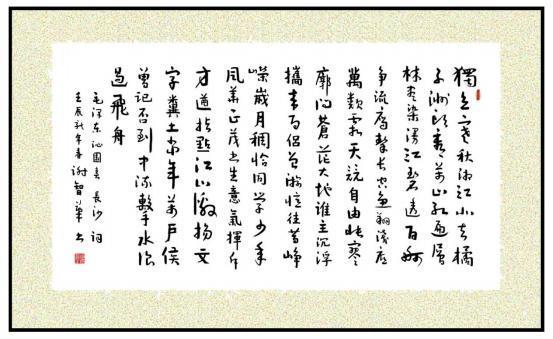 獨立寒秋湘江北去橘
子洲頭看萬山紅遍層
林盡染漫江碧透百舸
爭流鷹擊長空魚翔淺底
萬類霜天競自由悵寥
廓問蒼茫大地誰主沉浮
攜來百侶曾遊憶往昔崢
嶸歲月稠恰同學少年
風華正茂書生意氣揮斥
方遒指點江山激揚文
字糞土當年萬戶侯
曾記否到中流擊水浪
遏飛舟
毛泽东沁園春長沙詞
壬辰年春謝智書